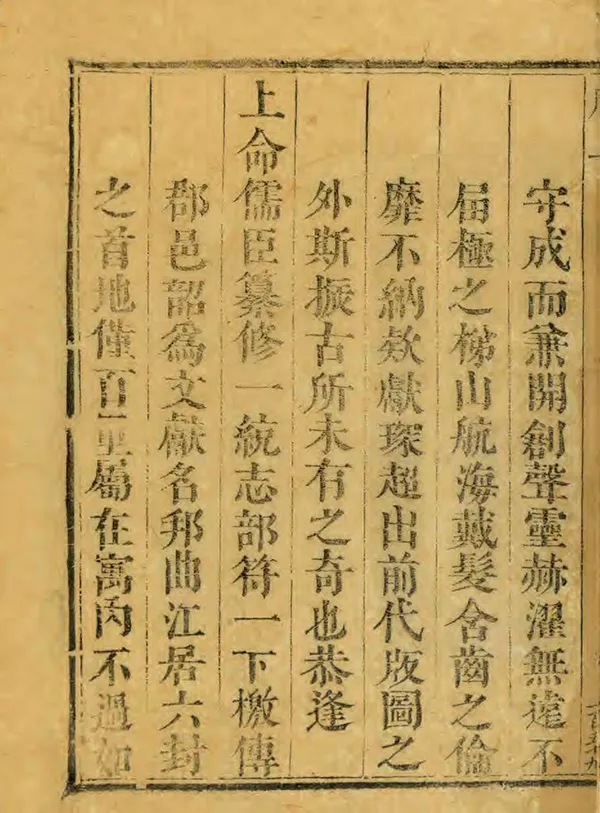 守成而兼開創聲靈赫濯無遠不
屆極之梯山航海戴髮含齒之倫
靡不納欵獻琛超出前代版圖之
外斯振古所未有之奇也恭逢
上命儒臣纂修一統志部符一下檄傳
郡邑韶為文獻名邦曲江居六封
之首地僅百里屬在寓内不過如